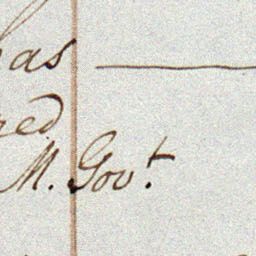 as
ged
M. Govt.